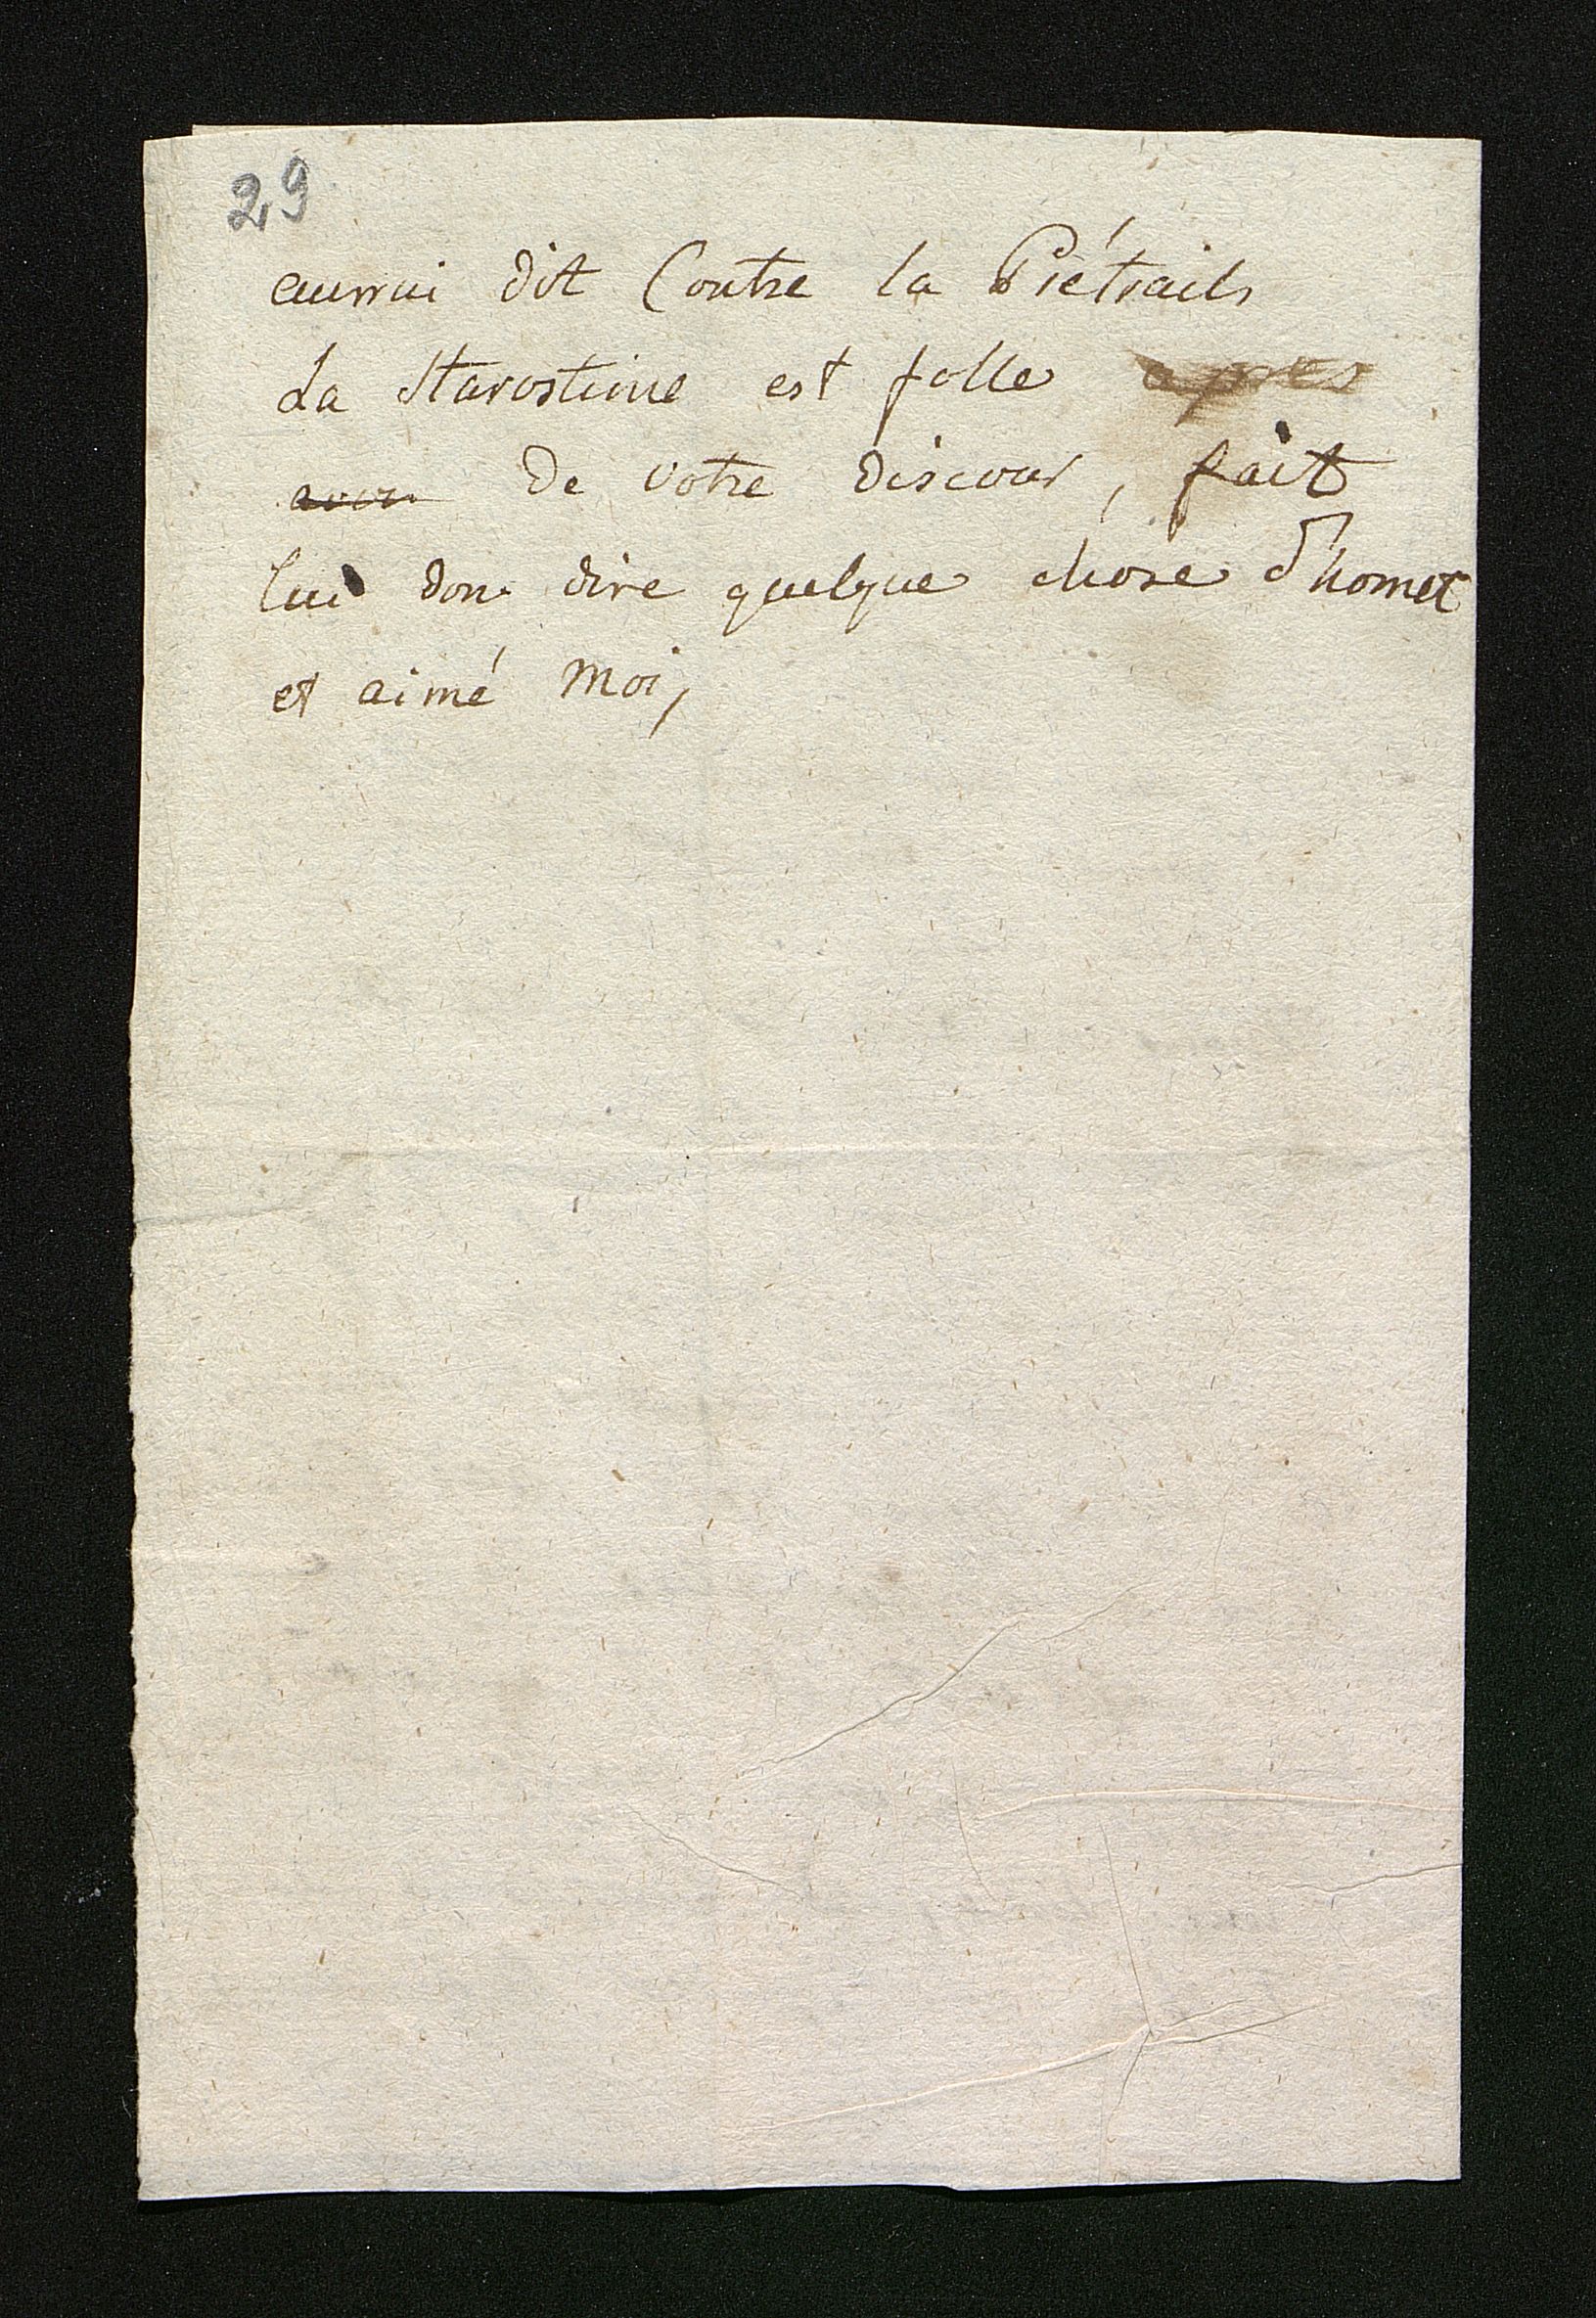 29
aurrai dit Contre la Piétrails
La Starostine est folle apres
avoir de votre discour, fait
lui don dire quelque chose d'honet
et aimé moi,